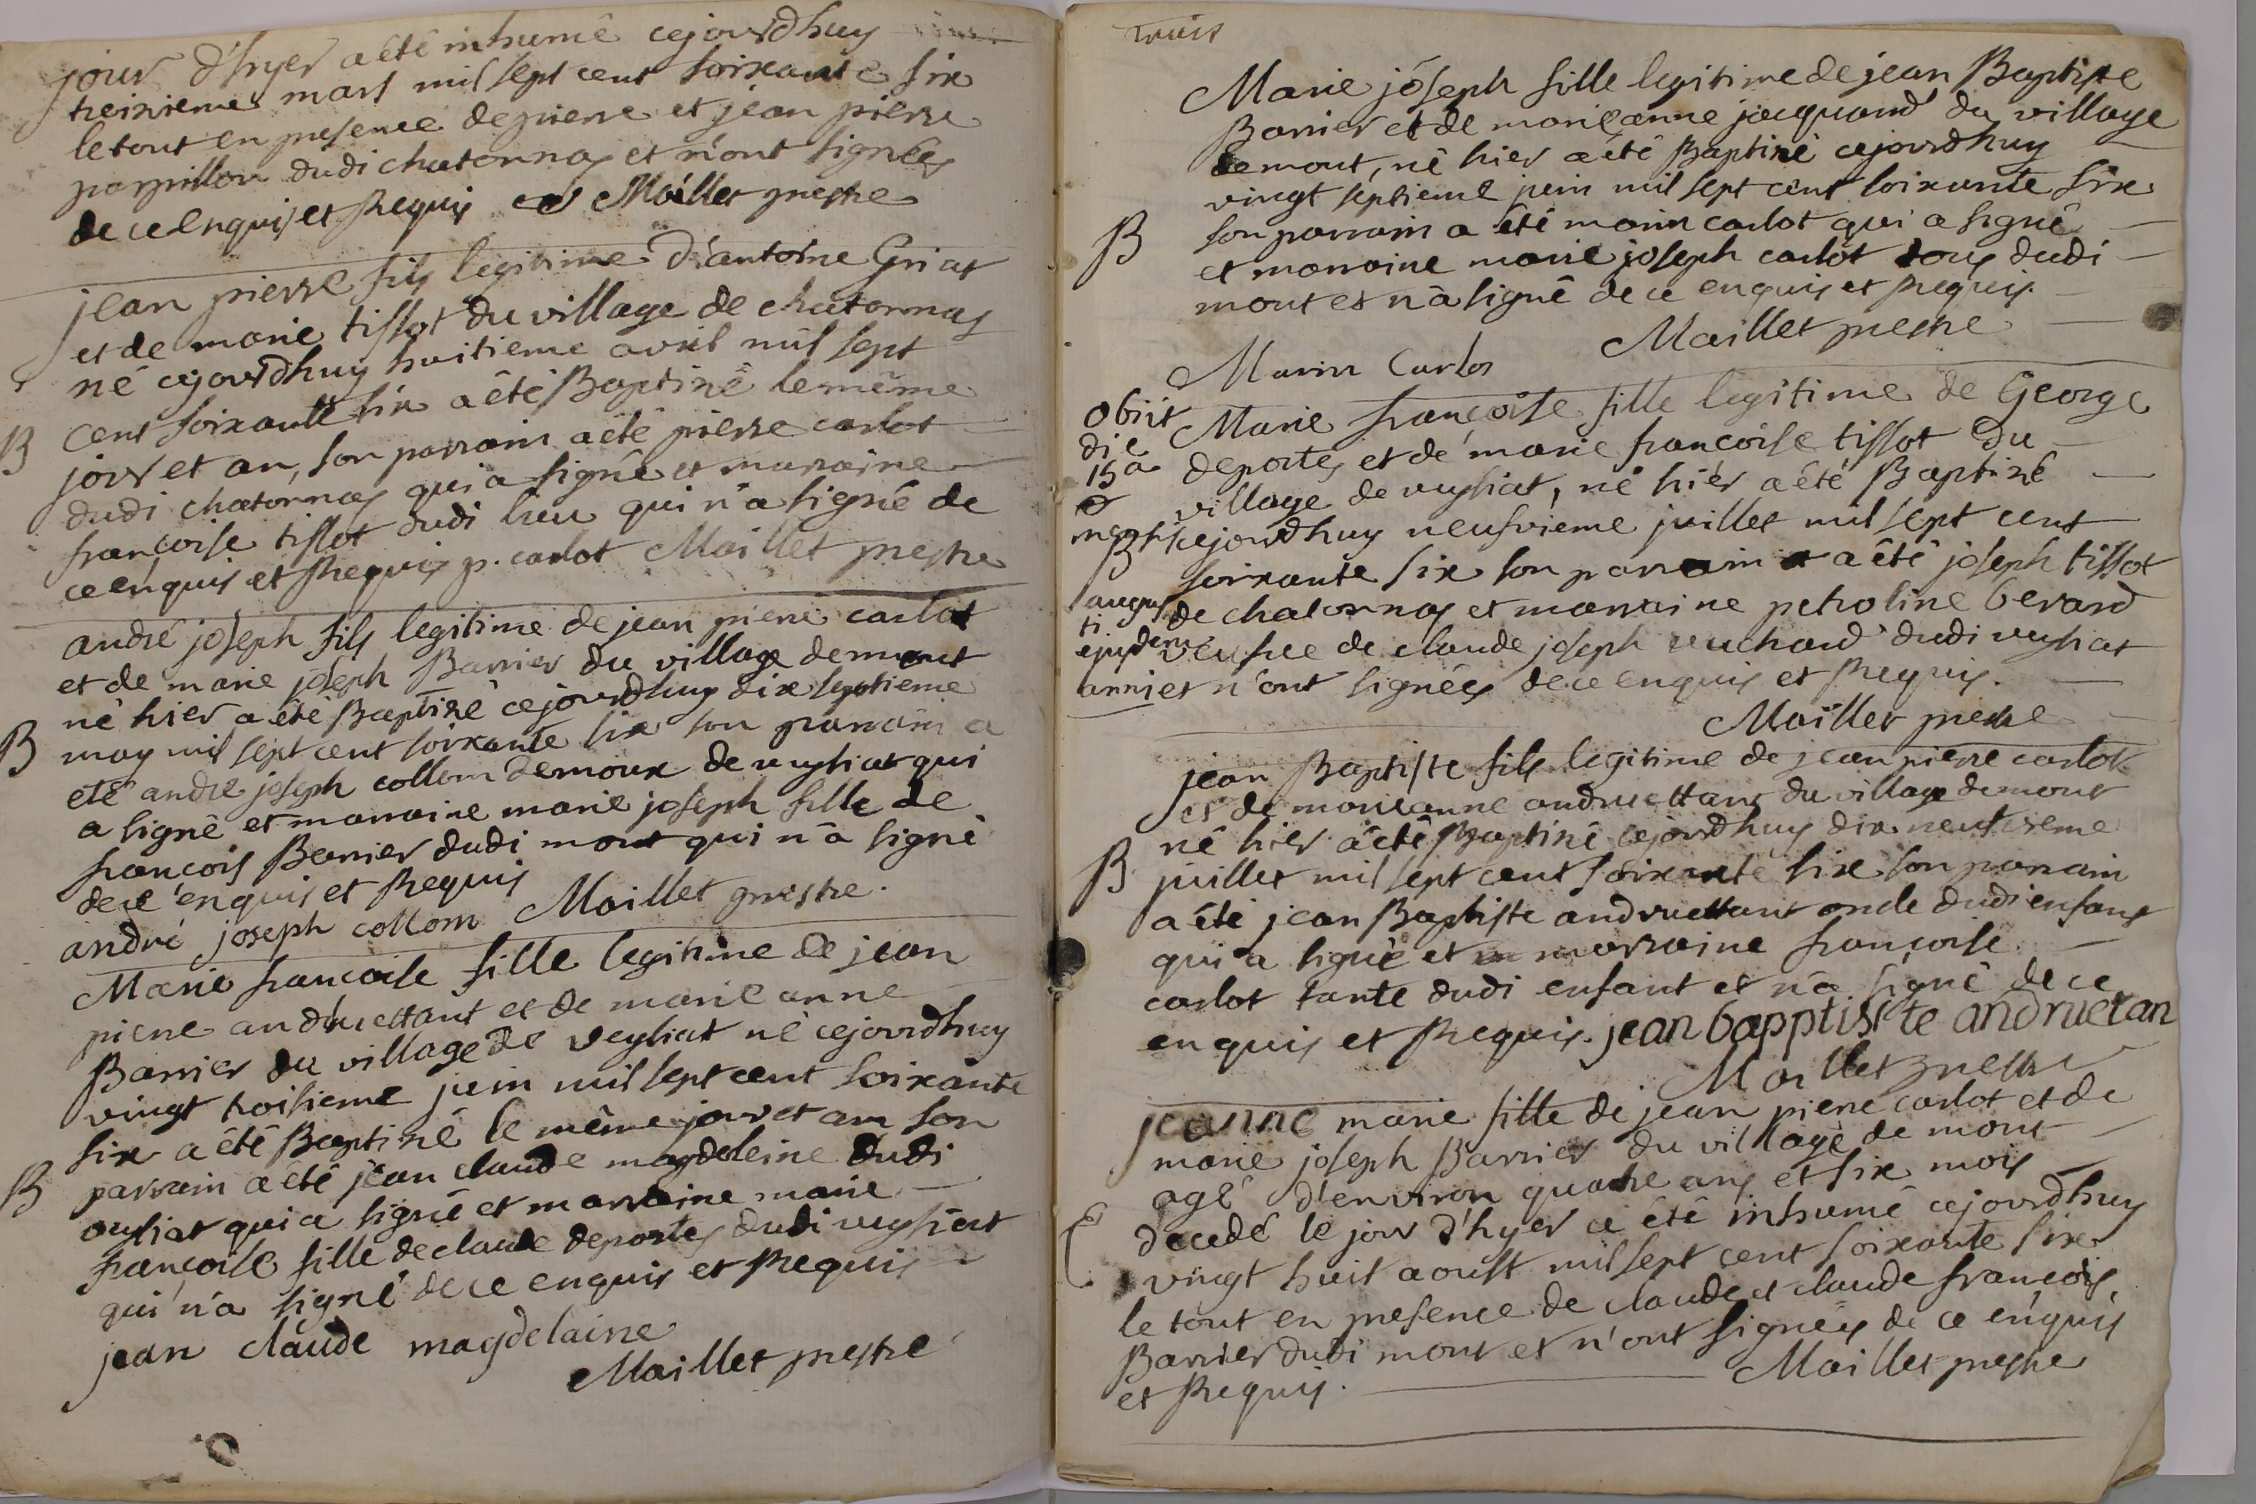 jour d'hyer a été inhumé cejourdhuy
treizieme mars mil sept cent soixante six
le tout en presence de pierre et jean pierre
papillon dudi chatonnay et n'ont signéés
de ce enquis et Requis Maillet prestre
jean pierre fils legitime d'antoine Griat
et de marie tissot du village de chatonnay
né cejourdhuy huitieme avril mil sept
cent soixante six a été Baptizé le même
B
jour et an, son parrain a été pierre carlot
dudi chatonnay qui a signé et marraine
francoise tissot dudi lieu qui n'a signé de
ce enquis et Requis p. carlot Maillet prestre
andré joseph fils legitime de jean pierre carlot
et de marie joseph Barrier du village demont
né hier a été Baptizé cejourdhuy dix septieme
B
may mil sept cent soixante six son parrain a
eté andré joseph collom demoux de vyssiat qui
a signé et marraine marie joseph fille de
francois Barrier dudi mont qui n'a signé
de ce enquis et Requis
andré joseph collom Maillet prestre.
Marie francoise fille legitime de jean
pierre andruettant et de marie anne
Barrier du village de veyssiat né cejourdhuy
vingt troisieme juin mil sept cent soixante
six a été Baptizé le même jour et an son
B
parrain a été jean claude magdeleine dudi
vyssiat qui a signé et marraine marie
francoise fille de claude deportes dudi vyssiat
qui n'a signé de ce enquis et Requis
jean claude magdelaine
Maillet prestre
trois
Marie jóseph fille legitime de jean Baptiste
Barrier et de marieanne jacquand du village
demont, né hier a été Baptizé cejourdhuy
vingt septieme juin mil sept cent soixante six
B
son parrain a été marin carlot qui a signé
et marraine marie joseph carlot tous dudi
mont et n'a signé de ce enquis et Requis.
Maillet prestre
Marin Carlot
obiit
die
15a
mensis
B
augus
ti
ejusdem
anni
Marie francoise fille legitime de George
deportes et de marie francoise tissot du
village de vyssiat, né hiér a été Baptizé
cejourdhuy neufvieme juillet mil sept cent
soixante six son parrain a été joseph tissot
de chatonnay et marraine petroline berard
veufve de claude joseph vuchard dudi vyssiat
et n'ont signéés de ce enquis et Requis.
Maillet prestre
jean Baptiste fils legitime de jean pierre carlot
et de marieanne andruettant du village demont
né hier a été Baptizé cejourdhuy dix neufvieme
B
juillet mil sept cent soixante six son parrain
a été jean Baptiste andruettant oncle dudi enfant
qui a signé et marraine francoise
carlot tante dudi enfant et n'a signé de ce
enquis et Requis. jean bapptisste andruetan
Maillet prestre
jeanne marie fille de jean pierre carlot et de
marie joseph Barrier du village de mont
agé d'environ quatre ans et six mois
decedé le jour d'hyer a été inhumé cejourdhuy
vingt huit aoust mil sept cent soixante six
le tout en presence de claude et claude francois
Barrier dudi mont et n'ont signéés de ce enquis
et Requis. Maillet prestre